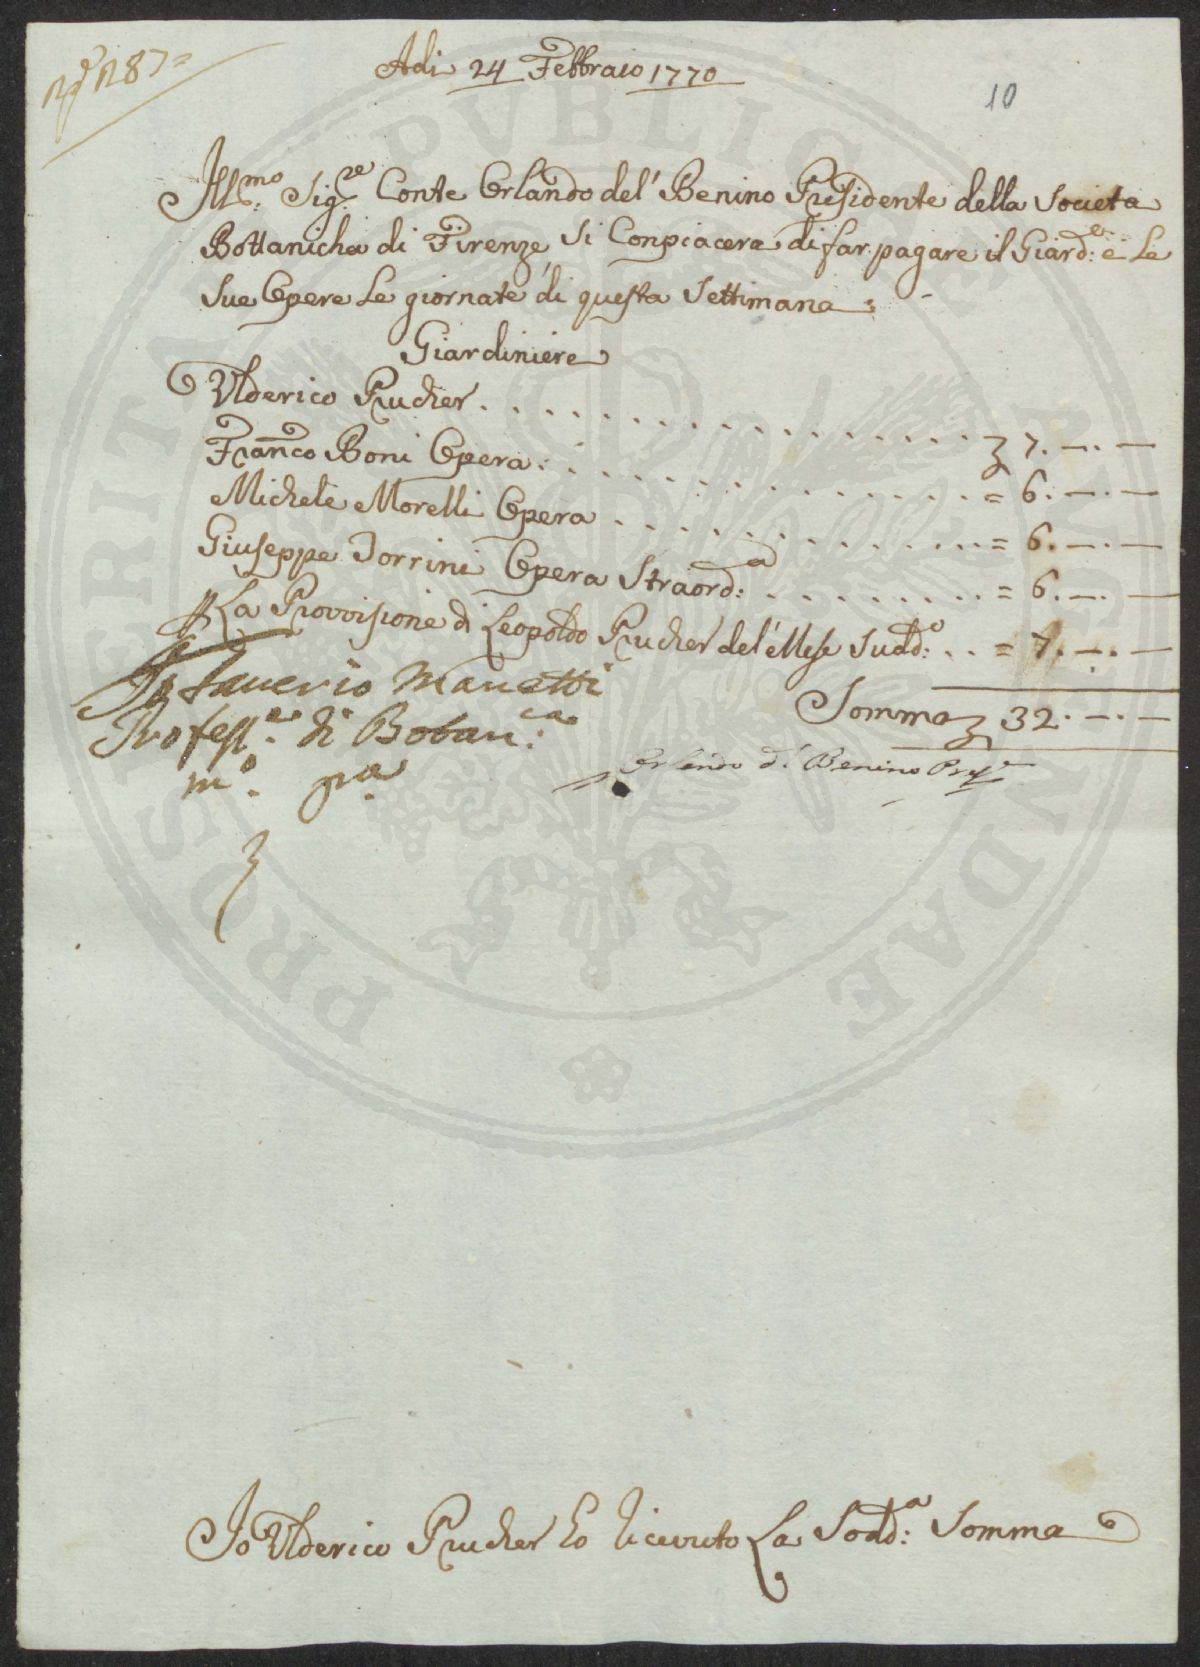 N.º 1287=
Adi 24 Febbraio 1770
10
Ill.mo Sig.re Conte Orlando del' Benino Presidente della Societa
Bottanicha di Firenze, Si Conpiacera di far pagare il Giard:e e Le
Sue Opere Le giornate di questa Settimana:
Giardiniere
Ulderico Prucher . . . . . . . . . . . . 7. — . —
Fran:co Boni Opera: . . . . . . . . . . . = 6. — . —
Michele Morelli Opera . . . . . . . . . . = 6. — . —
Giuseppe Torrini Opera Straord:a . . . . . . = 6. — . —
La Provvisione di Leopoldo Prucher del' Mese Sudd:o . . = 7. — . —
Somma 32. — . —
Io Saverio Manetti
Profess.re di Botan:ca
m.o pa
Orlando d' Benino Pres.e
Io Ulderico Prucher ho ricevuto La Sodd:a Somma
PROSPERITATI PVBLICAE AVGENDAE